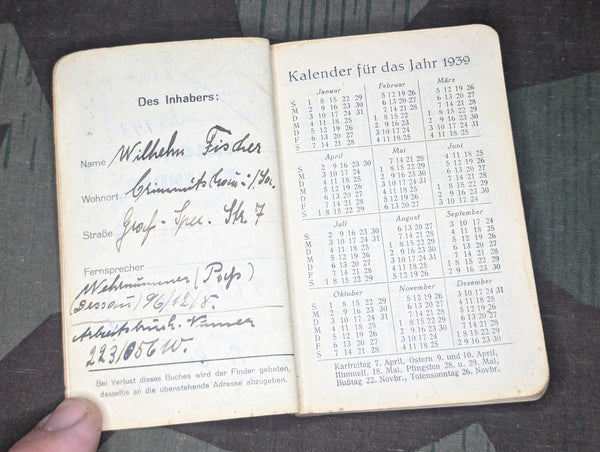 Des Inhabers:
Name Wilhelm Fischer
Wohnort Crimmitschau i/Sa.
Straße Graf. Spee. Str. 7
Fernsprecher
Wehrnummer (Paß)
(Dessau) 96/12/8.
Arbeitsbuch. Numer
223/056 W.
Bei Verlust dieses Buches wird der Finder gebeten,
dasselbe an die obenstehende Adresse abzugeben.
Kalender für das Jahr 1939
Januar Februar März
S 1 8 15 22 29 5 12 19 26 5 12 19 26
M 2 9 16 23 30 6 13 20 27 6 13 20 27
D 3 10 17 24 31 7 14 21 28 7 14 21 28
M 4 11 18 25 1 8 15 22 1 8 15 22 29
D 5 12 19 26 2 9 16 23 2 9 16 23 30
F 6 13 20 27 3 10 17 24 3 10 17 24 31
S 7 14 21 28 4 11 18 25 4 11 18 25
April Mai Juni
S 2 9 16 23 30 7 14 21 28 4 11 18 25
M 3 10 17 24 1 8 15 22 29 5 12 19 26
D 4 11 18 25 2 9 16 23 30 6 13 20 27
M 5 12 19 26 3 10 17 24 31 7 14 21 28
D 6 13 20 27 4 11 18 25 1 8 15 22 29
F 7 14 21 28 5 12 19 26 2 9 16 23 30
S 1 8 15 22 29 6 13 20 27 3 10 17 24
Juli August September
S 2 9 16 23 30 6 13 20 27 3 10 17 24
M 3 10 17 24 31 7 14 21 28 4 11 18 25
D 4 11 18 25 1 8 15 22 29 5 12 19 26
M 5 12 19 26 2 9 16 23 30 6 13 20 27
D 6 13 20 27 3 10 17 24 31 7 14 21 28
F 7 14 21 28 4 11 18 25 1 8 15 22 29
S 1 8 15 22 29 5 12 19 26 2 9 16 23 30
Oktober November Dezember
S 1 8 15 22 29 5 12 19 26 3 10 17 24 31
M 2 9 16 23 30 6 13 20 27 4 11 18 25
D 3 10 17 24 31 7 14 21 28 5 12 19 26
M 4 11 18 25 1 8 15 22 29 6 13 20 27
D 5 12 19 26 2 9 16 23 30 7 14 21 28
F 6 13 20 27 3 10 17 24 1 8 15 22 29
S 7 14 21 28 4 11 18 25 2 9 16 23 30
Karfreitag 7. April, Ostern 9. und 10. April,
Himmelf. 18. Mai, Pfingsten 28. u. 29. Mai,
Bußtag 22. Novbr., Totensonntag 26. Novbr.